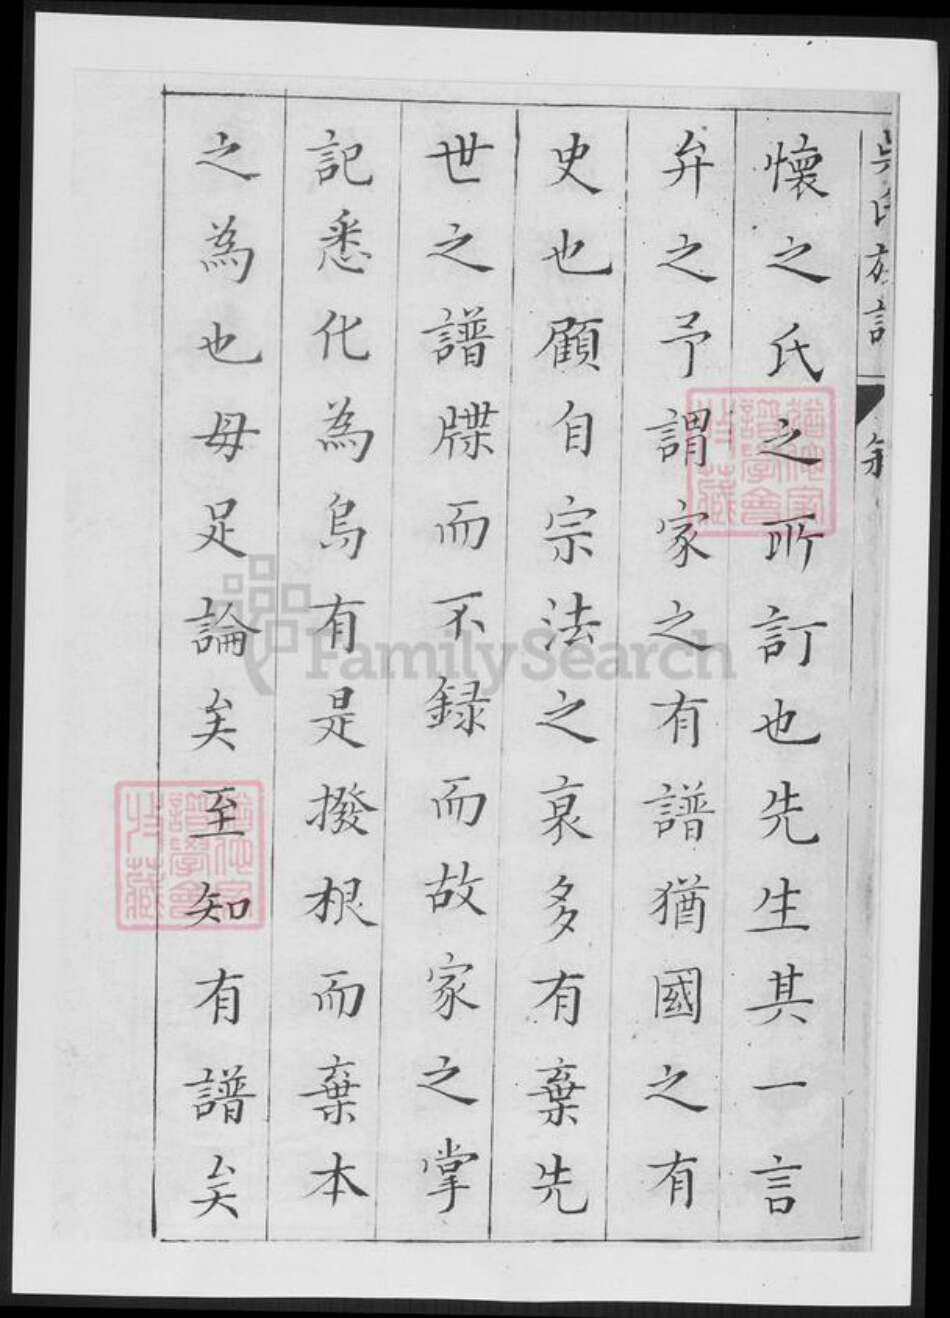 吳氏族譜
懷之氏之所訂也先生其一言
弁之予謂家之有譜猶國之有
史也顧自宗法之衰多有棄先
世之譜牒而不録而故家之掌
記悉化為烏有是撥根而棄本
之為也毋足論矣至知有譜矣
FamilySearch